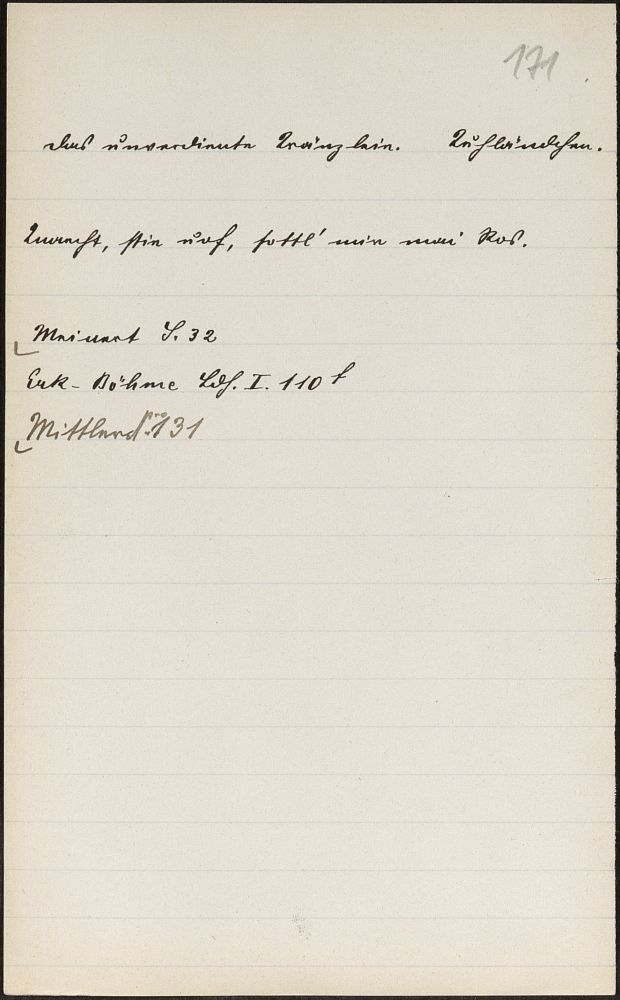 171
Das unverdiente Kränzlein. Kuhländchen.
Knaecht, stie uof, sottl' mir mai Ros.
Meinert S. 32
Erk-Böhme Ldh. I. 110 f
Mittler 131